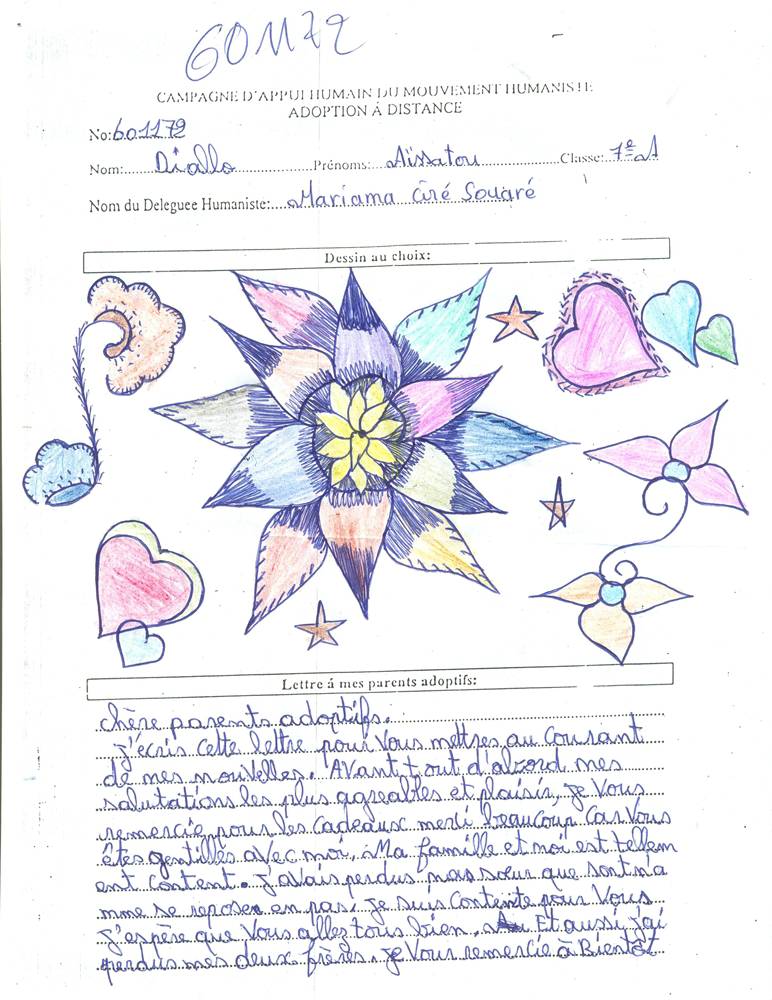 601172
CAMPAGNE D'APPUI HUMAIN DU MOUVEMENT HUMANISTE
ADOPTION Á DISTANCE
No: 601179
Nom: Diallo Prénoms: Aïssatou Classe: 7e A
Nom du Deleguee Humaniste: Mariama Ciré Souaré
Dessin au choix:
Lettre á mes parents adoptifs:
chère parents adoptifs.
j'écris cette lettre pour Vous mettres au Courant
de mes nouvelles. AVant tout d'abord mes
salutations les plus agreables et plaisir, je Vous
remercie pour les Cadeaux merci beauCoup Car Vous
êtes gentilles aVec moi. Ma famille et moi est tellem
ent Content. j'aVais perdus mas sœur que
mme se repose en pas. je suis Contente pour Vous
j'espère que Vous alles tous bien. Et aussi j'ai
perdus mes deux frères. je Vous remercie à Bientôt